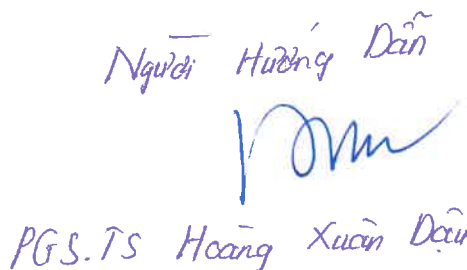 Người Hướng Dẫn
PGS.TS Hoàng Xuân Dậu